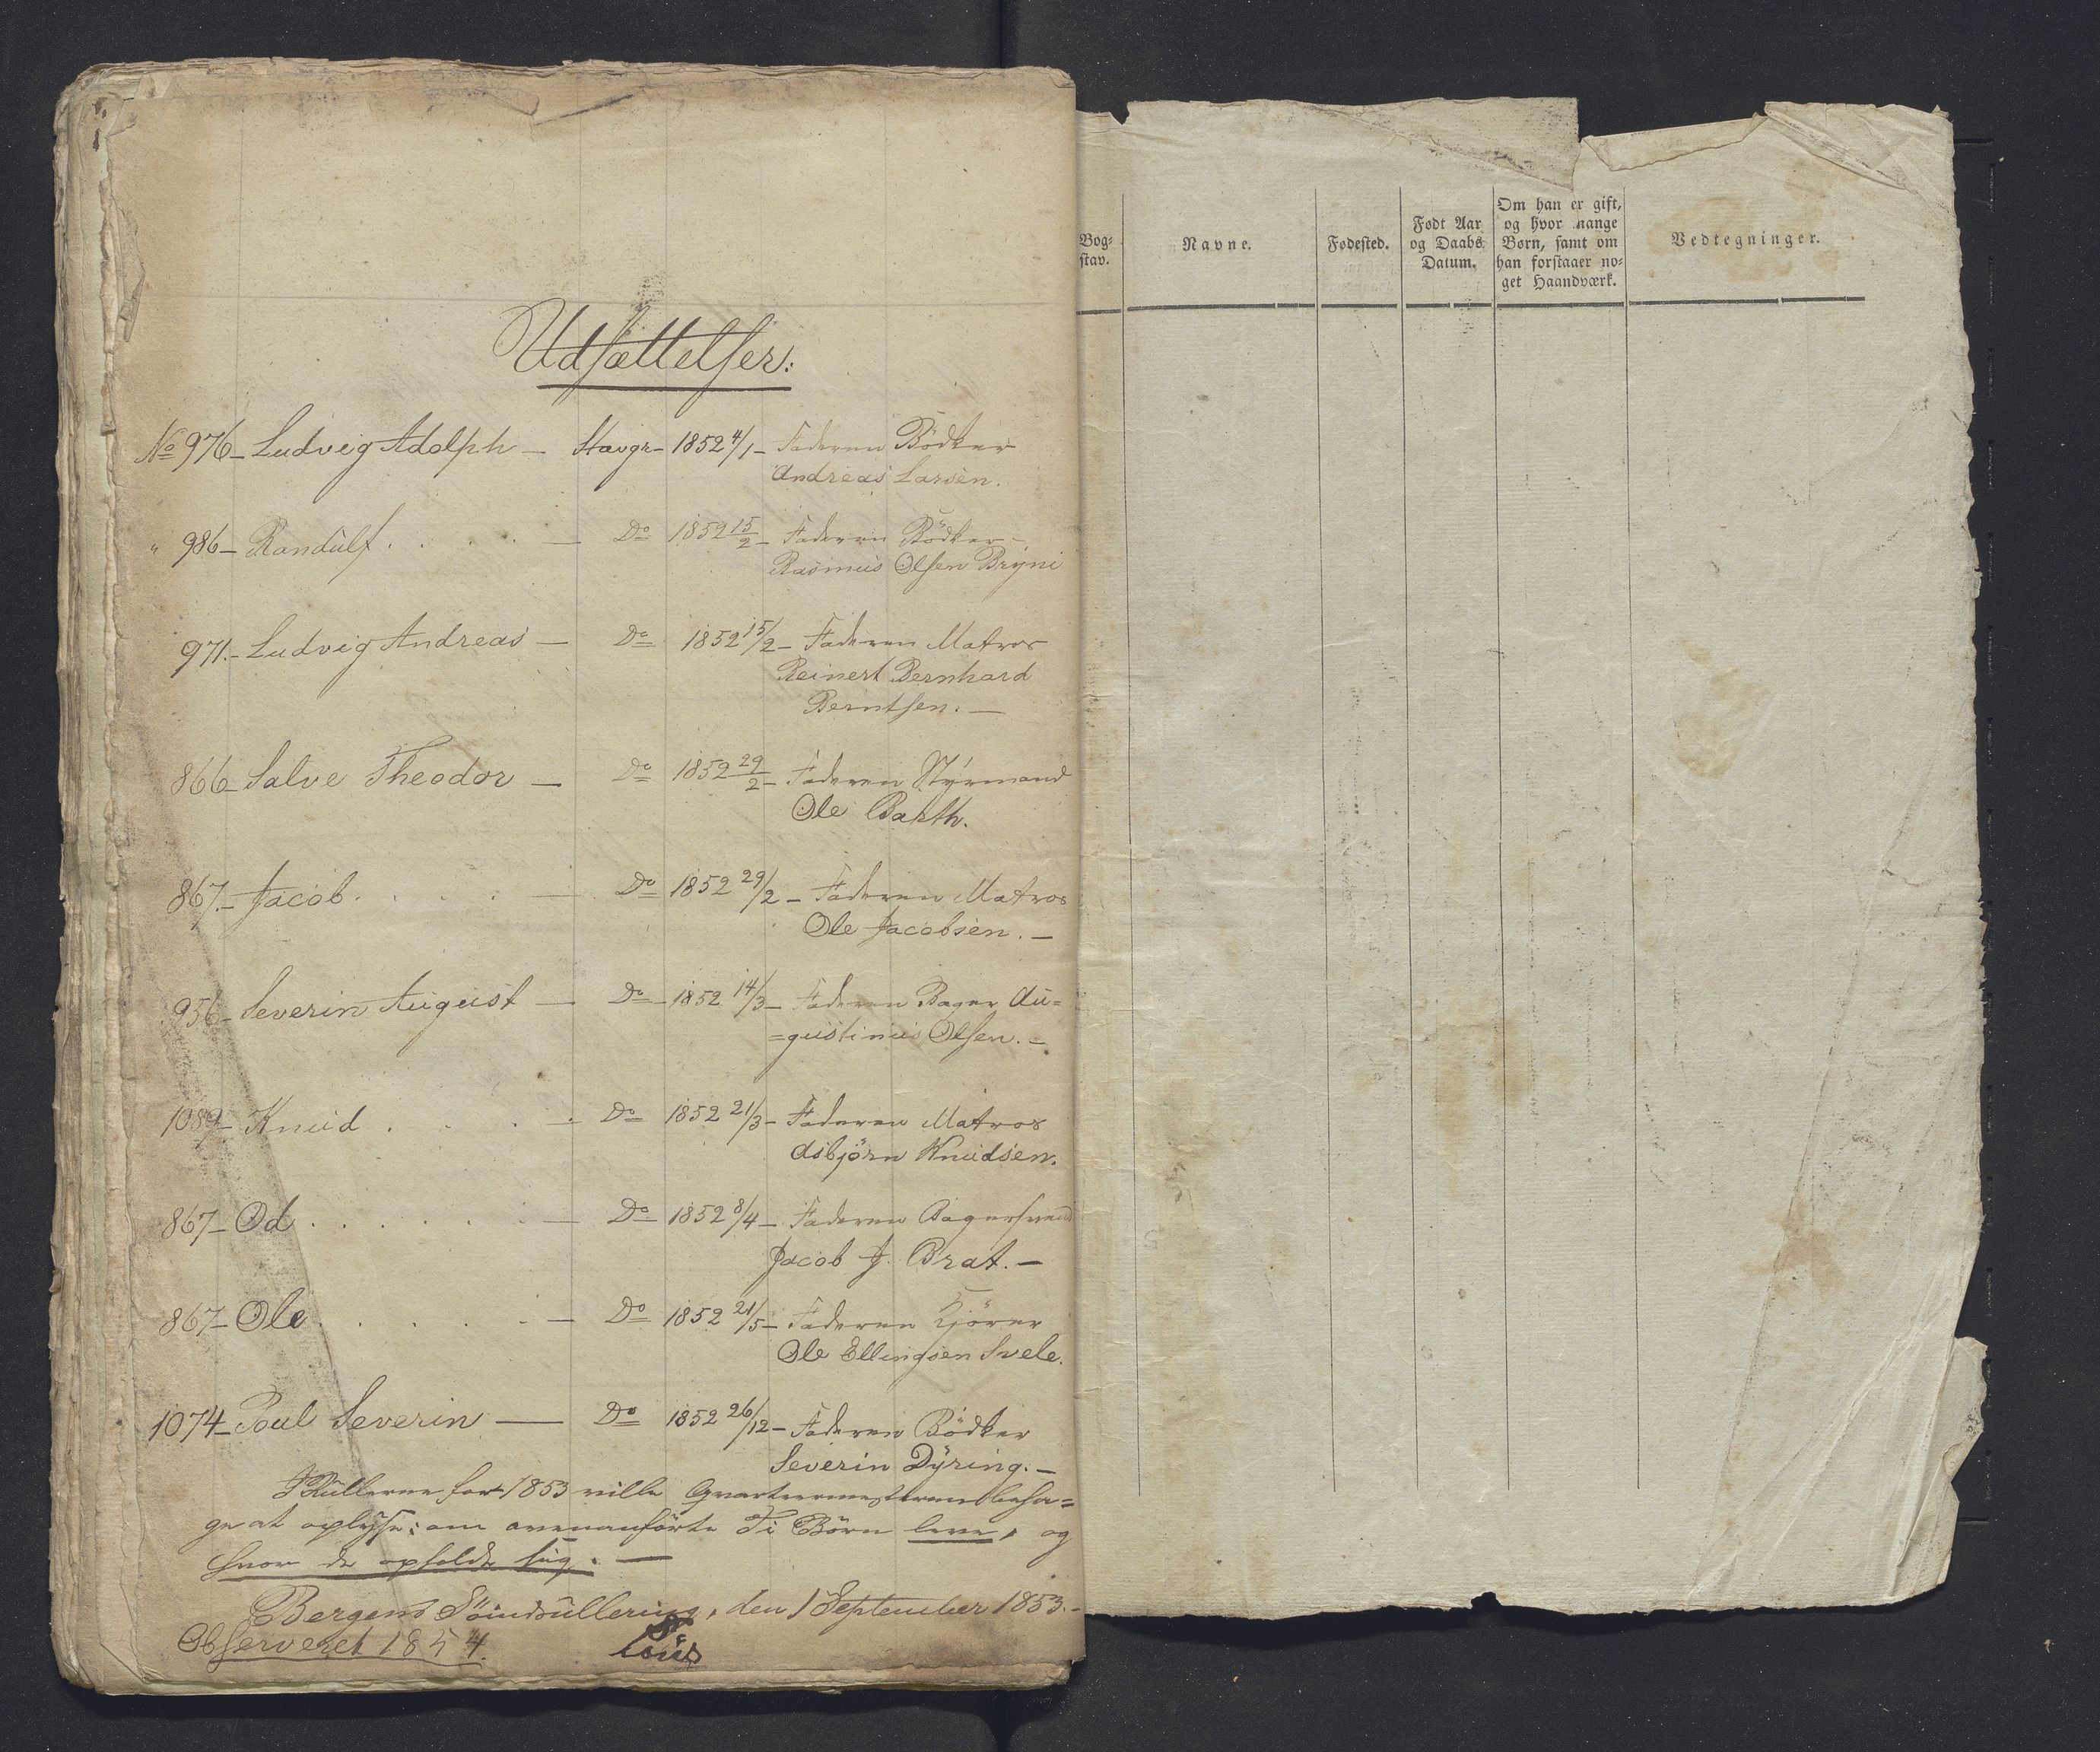 Udsættelser:
No 976 - Ludvig Adolph - Stavgr - 1852 4/1 - Faderen Bödker
Andreas Larsen.
" 986 - Randulf . . . . - Do 1852 15/2 - Faderen Bödker -
Rasmus Olsen Bryni
971. - Ludvig Andreas - Do 1852 15/2 - Faderen Matros
Reinert Bernhard
Berntsen. -
866 - Salve Theodor - Do 1852 29/2 - Faderen Styrmand
Ole Barth.
867. - Jacob . . . . - Do 1852 29/2 - Faderen Matros
Ole Jacobsen. -
956 - Severin August - Do - 1852 14/3 - Faderen Bager Au=
=gustinus Olsen. -
1089 - Knud . . . - Do 1852 21/3 - Faderen Matros
Asbjörn Knudsen.
867 - Od . . . . . - Do 1852 8/4 - Faderen Bagersvend
Jacob J. Brat. -
867 - Ole . . . . . - Do 1852 21/5 - Faderen Kjörer
Ole Ellingsen Svele.
1074 - Poul Severin - Do 1852 26/12 - Faderen Bödker
Severin Dyring. -
I Rullerne for 1853 ville Qvarteermesteren beha=
ge at oplyse: om ovenanförte Ti Börn leve, og
hvor de opholde sig. -
Bergens Söindrullering, den 1 September 1853. -
Observeret 1854.
Bog=
stav.
Navne.
Fødested.
Født Aar
og Daabs
Datum.
Om han er gift,
og hvor mange
Børn, samt om
han forstaaer no=
get Haandværk.
Vedtegninger.